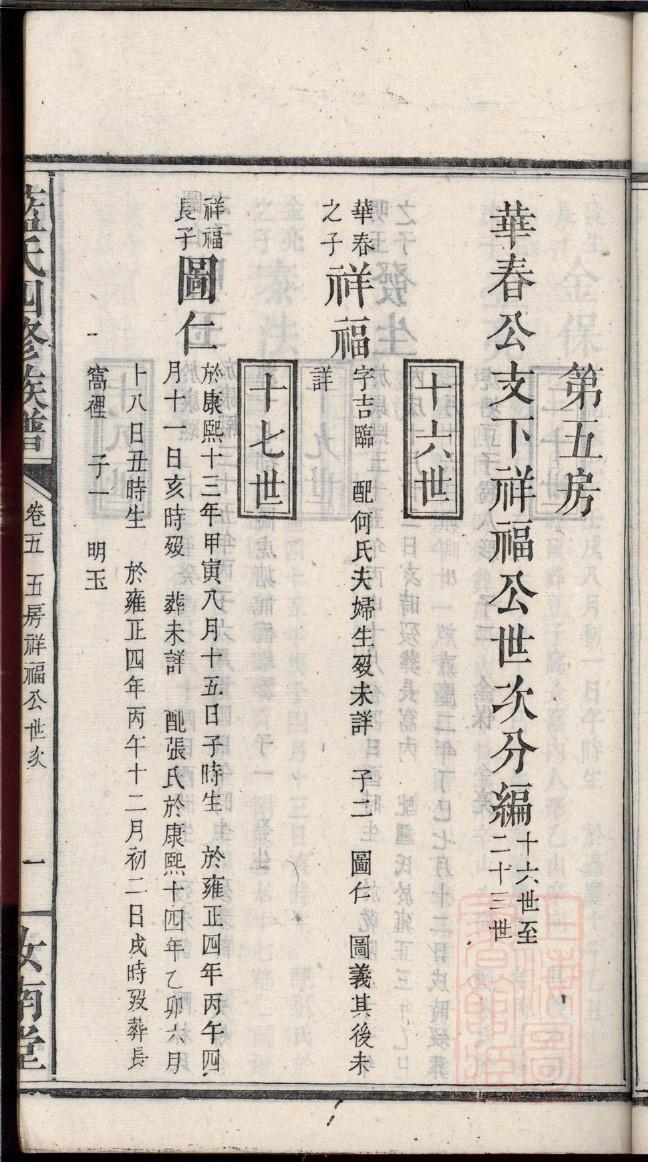 第五房
華春公支下祥福公世次分編
十六世至
二十三世
十六世
華春
之子
祥福
字吉臨 配何氏夫婦生歿未詳 子二 圖仁 圖義其後未
詳
十七世
祥福
長子
圖仁
於康熙十三年甲寅八月十五日子時生 於雍正四年丙午四
月十一日亥時歿 葬未詳 配張氏於康熙十四年乙卯六月
十八日丑時生 於雍正四年丙午十二月初二日戌時歿葬長
窩裡 子一 明玉
藍氏四修族譜
卷五 五房祥福公世次
一
汝南堂